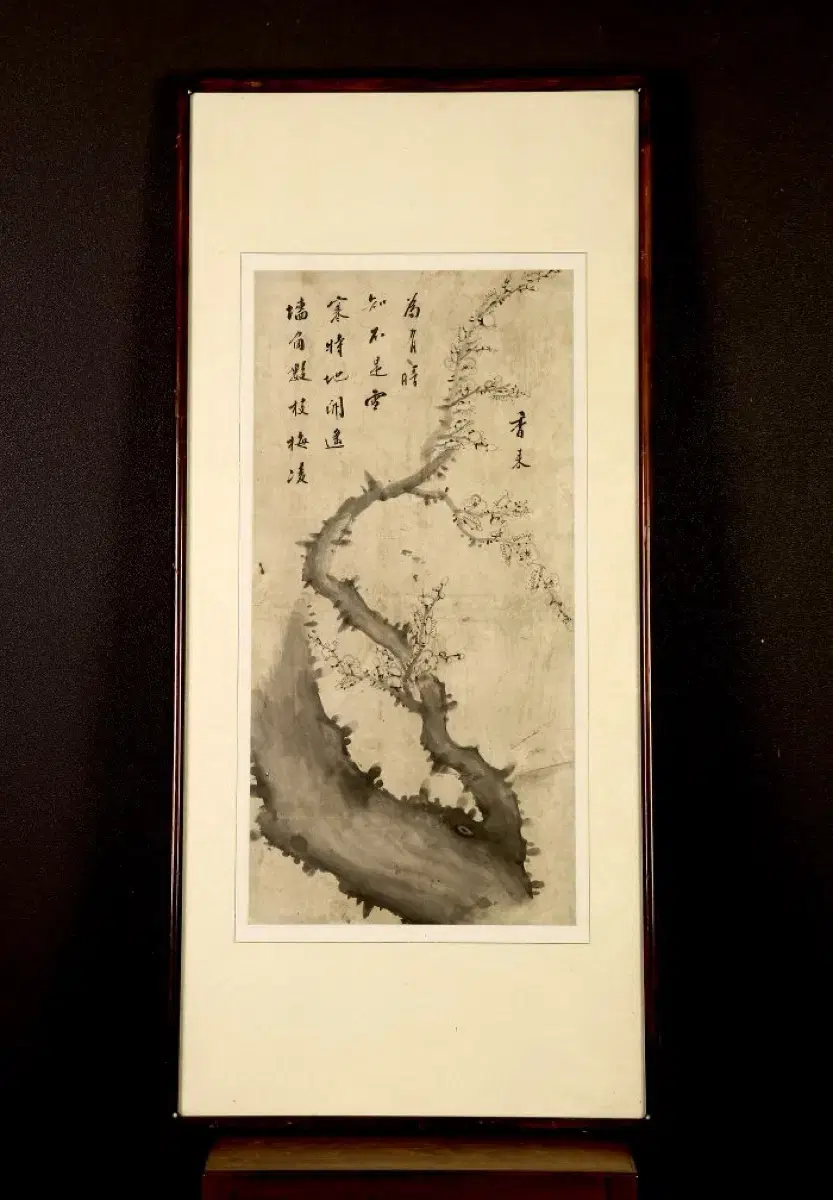 墻角數枝梅凌
寒特地開遙
知不是雪
為有暗
香来